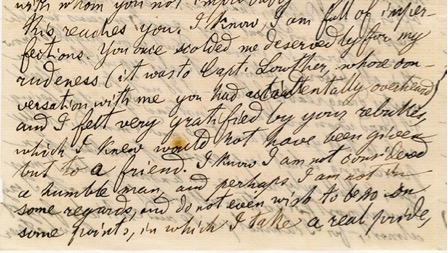 with whom you not improbably
this reaches you. I know I am full of imper-
fections. You once scolded me deservedly for my
rudeness (it was to Capt. Lowther, whose con-
versation with me you had accidentally overheard)
and I felt very gratified by your rebuke,
which I knew would not have been given
but to a friend. I know I am not considered
a humble man, and perhaps I am not in
some regards, and do not even wish to be so on
some points, in which I take a real pride,